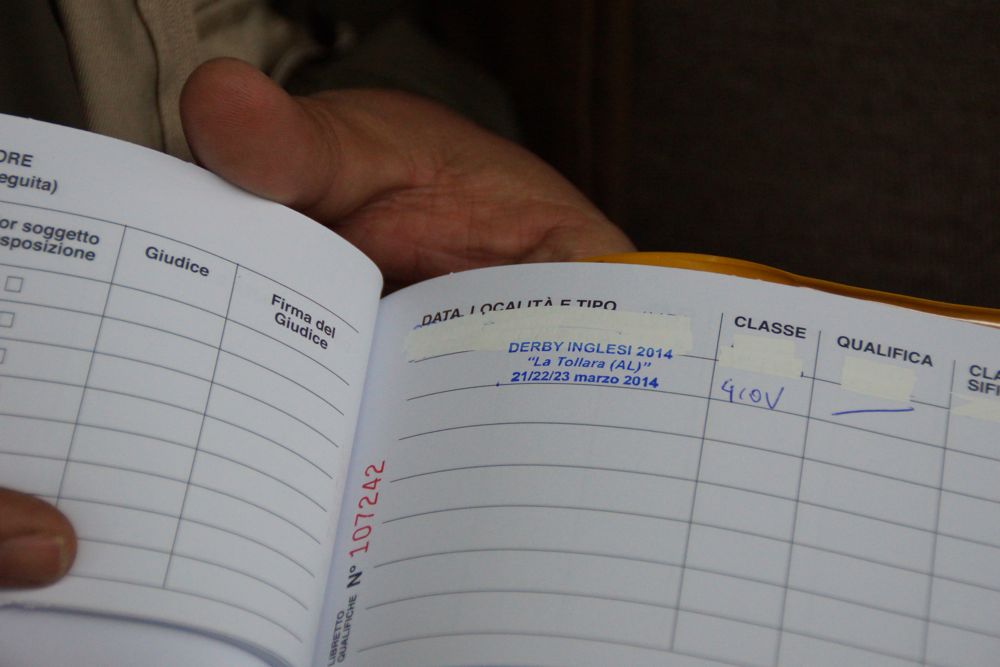 ORE
eguita)
or soggetto
sposizione
Giudice
Firma del
Giudice
DATA, LOCALITÀ E TIPO
CLASSE
QUALIFICA
CLA
SIFI
DERBY INGLESI 2014
"La Tollara (AL)"
21/22/23 marzo 2014
GIOV
LIBRETTO
QUALIFICHE
N° 107242